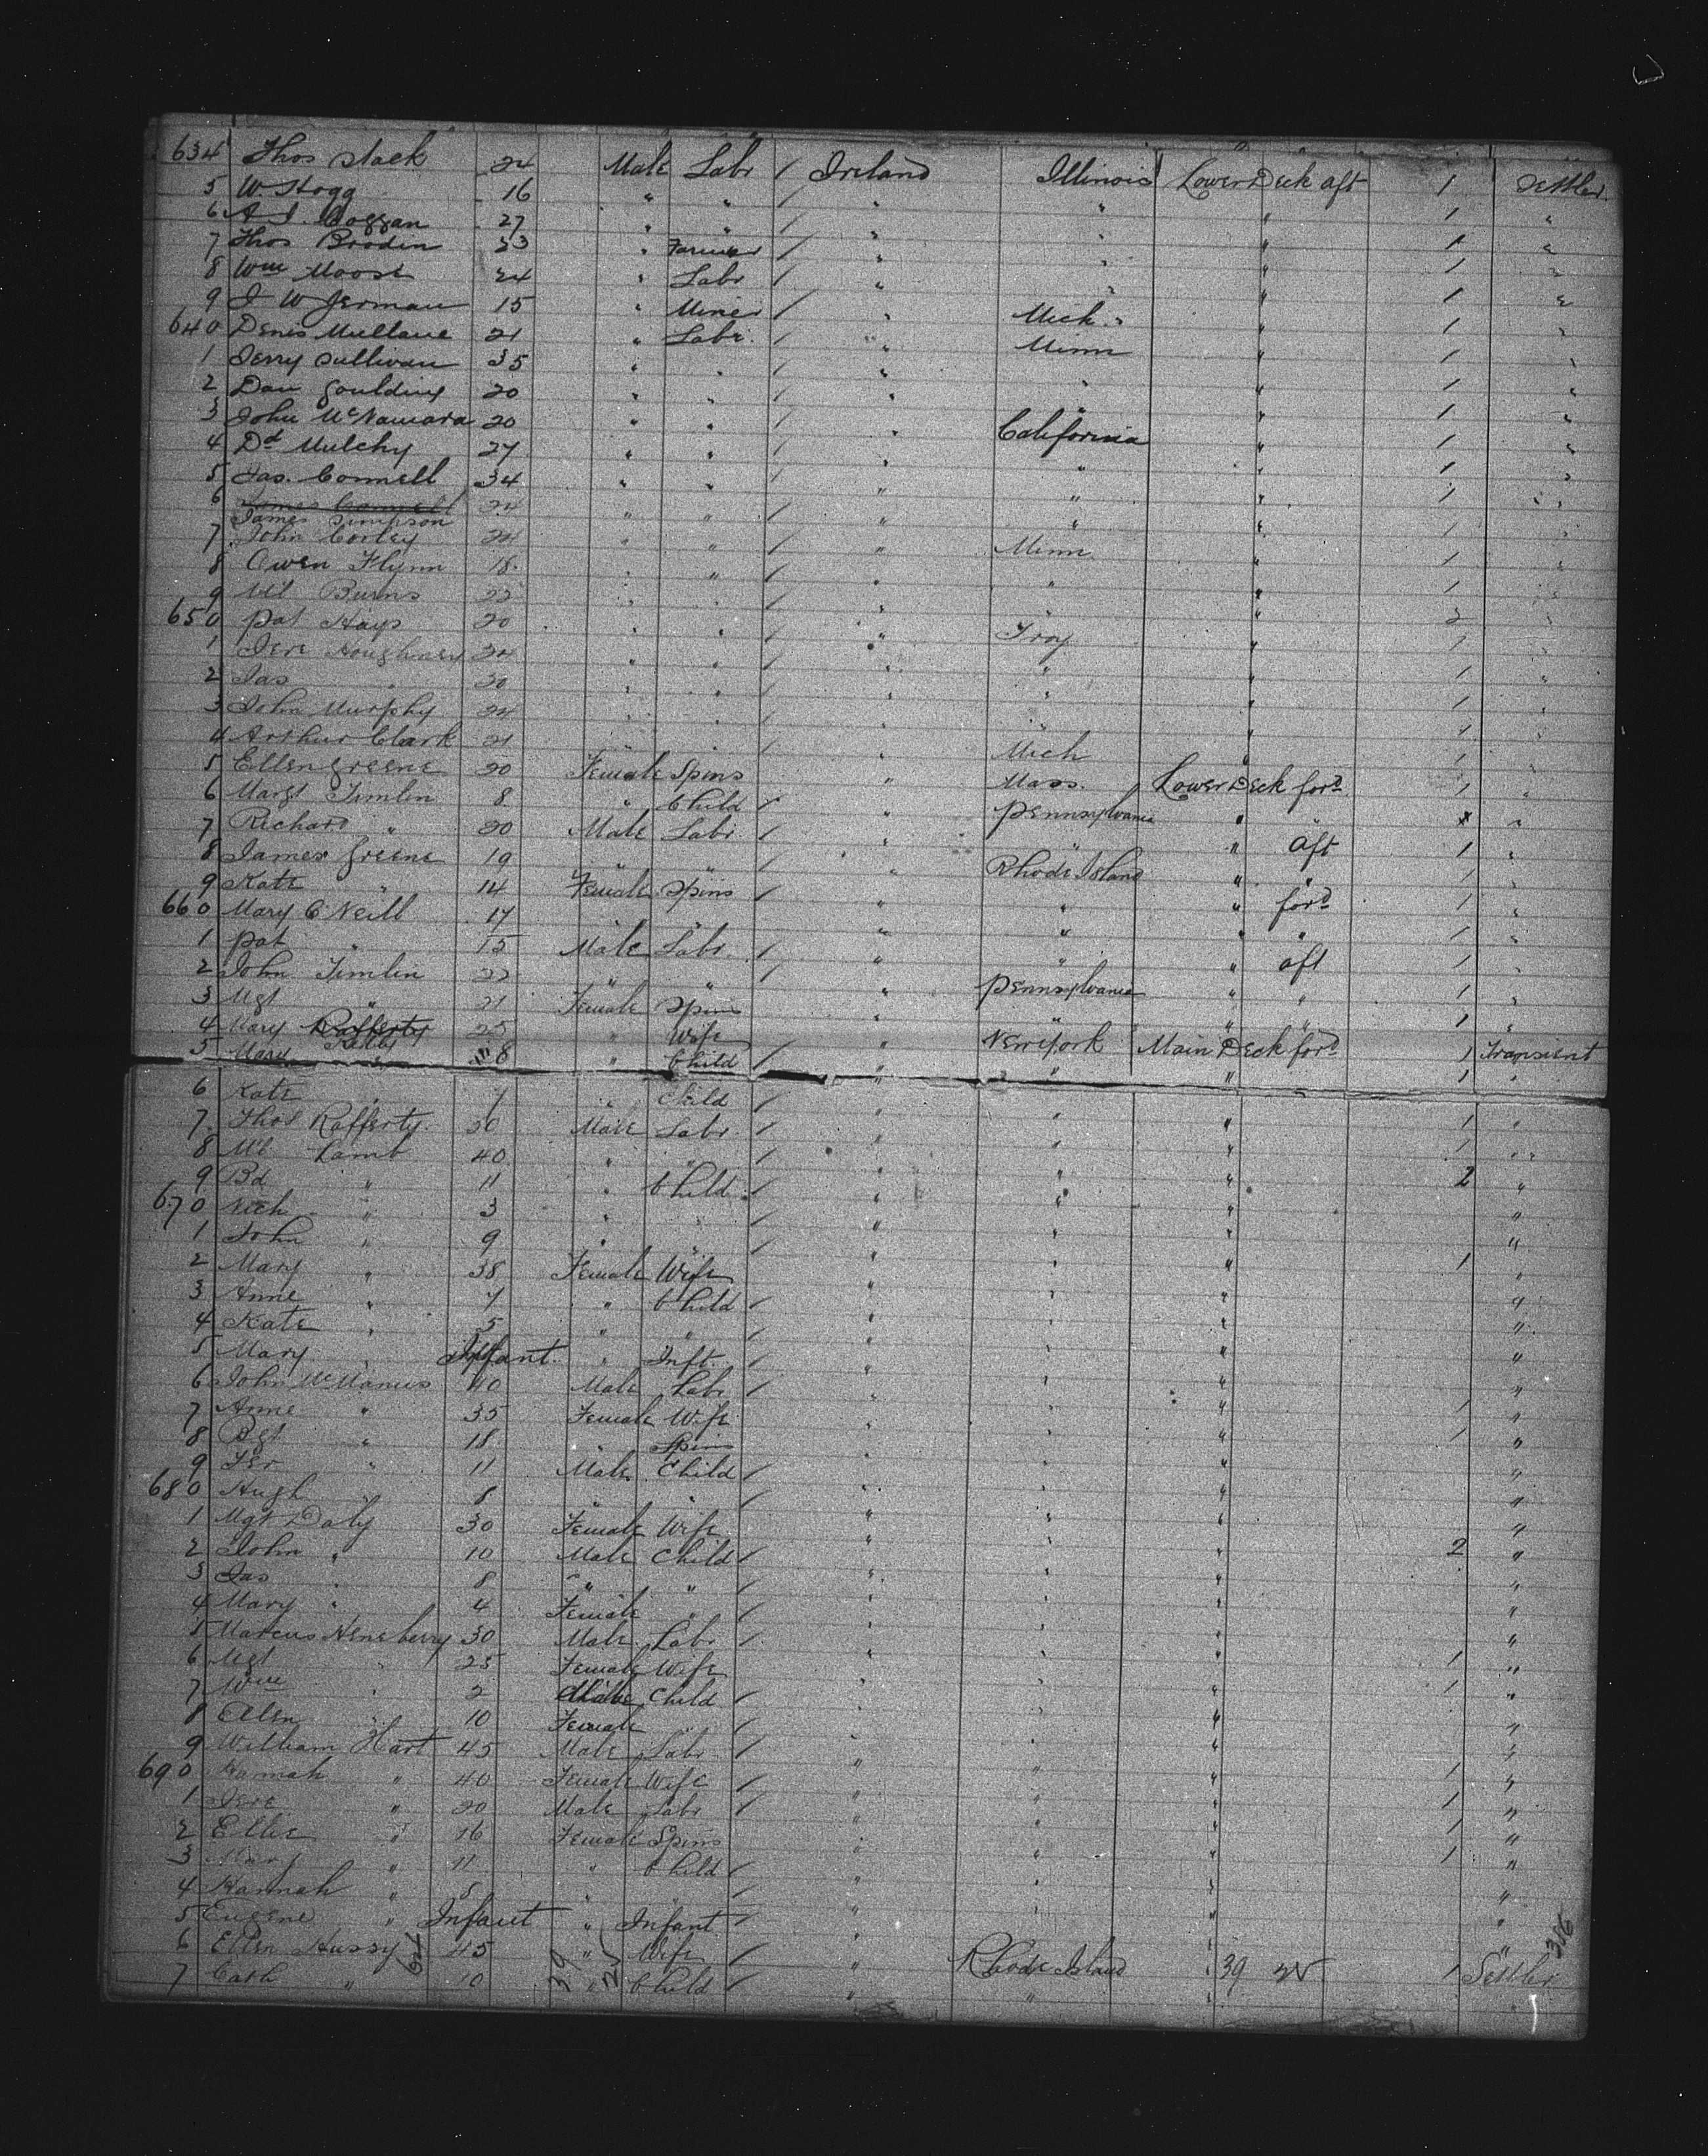 634 Thos Slack 24 Male Labr / Ireland Illinois Lower Deck aft 1 Settler
5 W Hogg 16 " " / " " " 1 "
6 A J. Coggan 27 " " / " " " 1 "
7 Thos Brodin 33 " Farmer / " " " 1 "
8 Wm Moose 24 " Labr / " " " 1 "
9 J W Jerman 15 " Miner / " Mich " 1 "
640 Denis Mullane 21 " Labr. / " Minn " 1 "
1 Jerry Sullivan 35 " " / " " 1 "
2 Dan Goulding 20 " " / " " " 1 "
3 John McNamara 20 " " / " California " 1 "
4 Dd Mulchy 27 " " / " " " 1 "
5 Jas. Connell 34 " " / " " " 1 "
6 James Connell 24 " " / " " " 1 "
James Simpson
7 John Corley 24 " " / " Minn " 1 "
8 Owen Flynn 18 " " / " " " 1 "
9 Ml Burns 22 " " / " " " 2 "
650 Pat Hays 20 " " / " Troy " 1 "
1 Jere 24 " " / " " " 1 "
2 Jas " 20 " " / " " " 1 "
3 John Murphy 24 " " / " " 1 "
4 Arthur Clark 21 " " / " Mich " 1 "
5 Ellen Greene 20 Female Spins " Mass. Lower Deck ford 1 "
6 Margt Timlin 8 " Child / " Pennsylvania " " "
7 Richard " 20 Male Labr. / " " " Aft 1 "
8 James Greene 19 " " / " Rhode Island " " 1 "
9 Kate " 14 Female Spins / " " " ford 1 "
660 Mary O'Neill 17 " " " " " " 1 "
1 Pat " 15 Male Labr. / " " " aft 1 "
2 John Timlin 22 " " / " Pennsylvania " " 1 "
3 Mgt " 21 Female Spins " " " " 1 "
4 Mary Rafferty 25 " Wife " New York Main Deck ford 1 Transient
5 Mary " 8 " Child / " " " 1 "
6 Kate " 7 " Child / " " "
7 Thos Rafferty 30 Male Labr / " " " 1 "
8 Ml Lamb 40 " " / " " " 1 "
9 Bd " 11 " Child / " " " 2 "
670 Mich " 3 " " / " " " "
1 John " 9 " " / " " " "
2 Mary " 38 Female Wife " " " 1 "
3 Anne " 7 " Child / " " " "
4 Kate " 5 " " / " " " "
5 Mary " Infant " Inft. / " " " "
6 John McManus 40 Male Labr / " " " 1 "
7 Anne " 35 Female Wife " " " 1 "
8 Bgt " 18 " Spins " " " "
9 Ter " 11 Male Child / " " " "
680 Hugh " 8 " " / " " " "
1 Mgt Daly 30 Female Wife " " " "
2 John " 10 Male Child / " " " 2 "
3 Jas " 8 " " / " " " "
4 Mary " 4 Female " / " " " "
5 Marcus Heneberry 30 Male Labr / " " " "
6 Mgt " 25 Female Wife " " " 1 "
7 Wm " 2 Male Child / " " " 1 "
8 Ellen " 10 Female " / " " " "
9 William Hart 45 Male Labr / " " " "
690 Hannah " 40 Female Wife / " " " 1 "
1 Jere " 20 Male Labr / " " " 1 "
2 Ellie " 16 Female Spins " " " 1 "
3 Mary " 11 " Child / " " " 1 "
4 Hannah " 5 " " / " " " "
5 Eugene " Infant " Infant / " " " "
6 Ellen Hussy 45 " Wife / " Rhode Island " 39 1 Settler
7 Cath " 10 39 " Child / " " " "
386